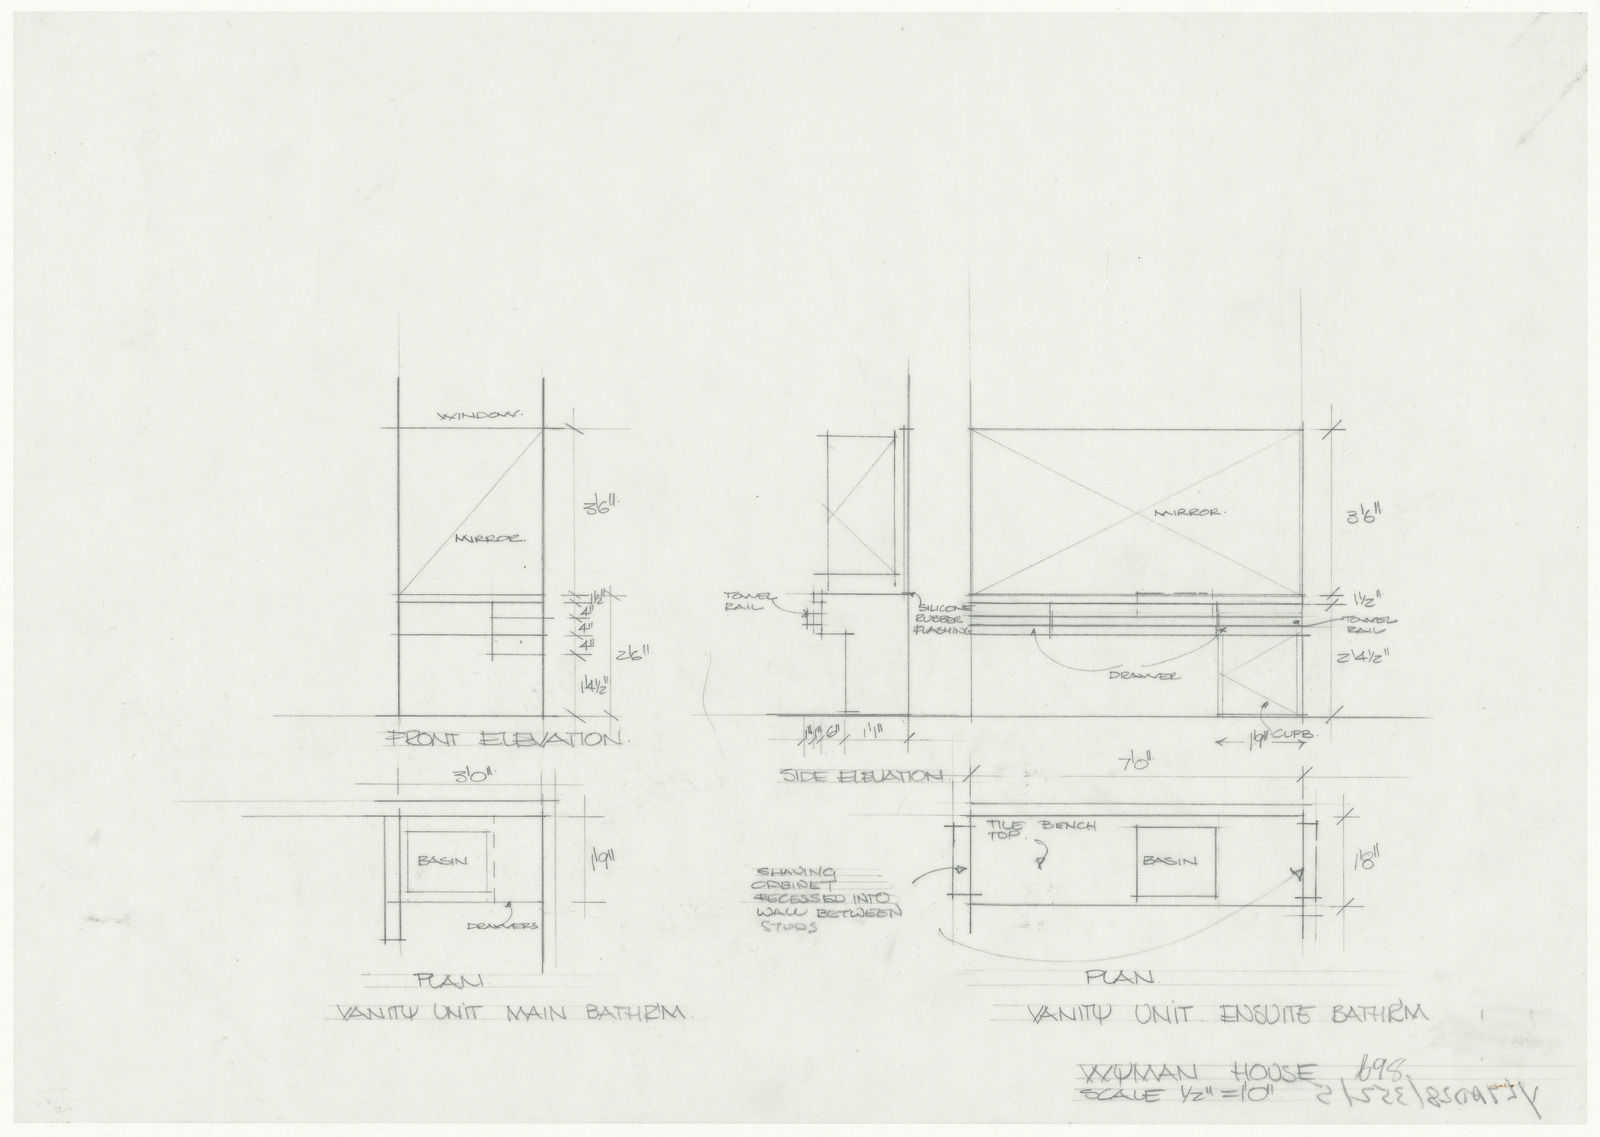 WINDOW.
3'6"
MIRROR.
1½"
4"
4"
4"
2'6"
1'4½"
FRONT ELEVATION.
3'0"
BASIN
1'9"
DRAWERS
PLAN
VANITY UNIT MAIN BATHR'M.
TOWEL
RAIL
SILICONE
RUBBER
FLASHING
1" 1" 6" 1'1"
SIDE ELEVATION
MIRROR.
3'6"
1½"
TOWEL
RAIL
2'4½"
DRAWER
1'9" CUPB.
7'0"
TILE BENCH
TOP.
BASIN
1'8"
SHAVING
CABINET
RECESSED INTO
WALL BETWEEN
STUDS
PLAN.
VANITY UNIT. ENSUITE BATHR'M
WYMAN HOUSE 698
SCALE ½" = 1'0"